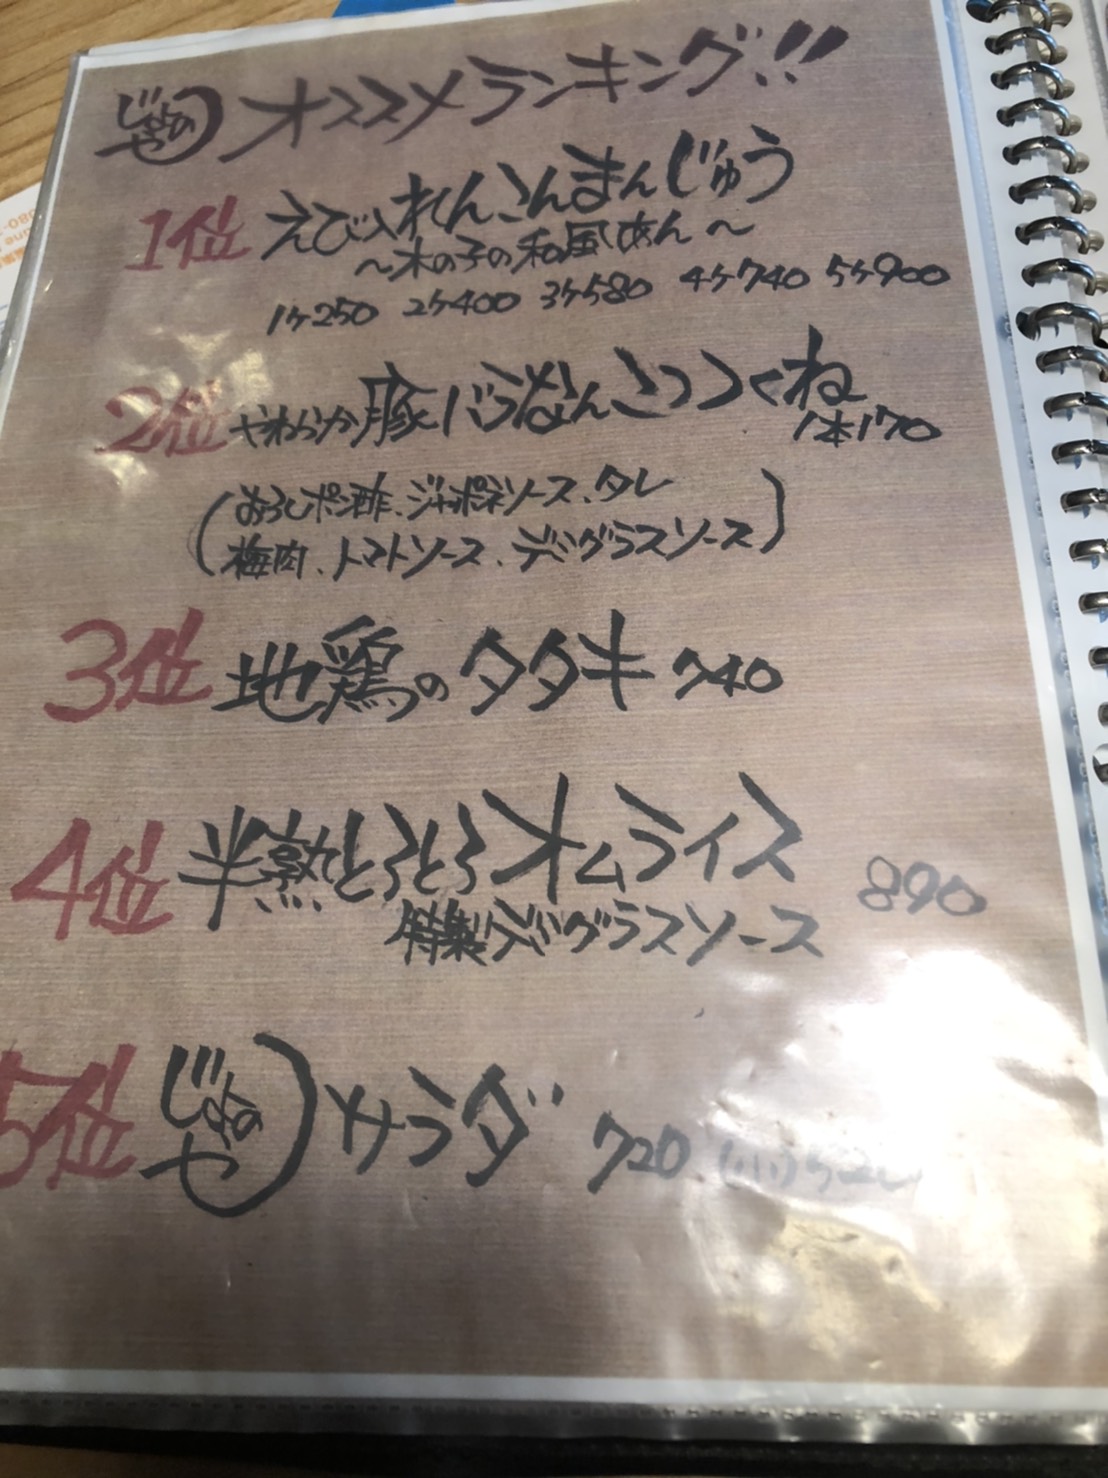 じょのや オススメランキング!!
1位 えび入れんこんまんじゅう
～木の子の和風あん～
1ケ250 2ケ400 3ケ580 4ケ740 5ケ900
2位 やわらか豚バラなんこつつくね
1本170
(おろしポン酢、ジャポネソース、タレ
梅肉、トマトソース、デミグラスソース)
3位 地鶏のタタキ 740
4位 半熟とろとろオムライス 890
特製デミグラスソース
5位 じょのや サラダ 720